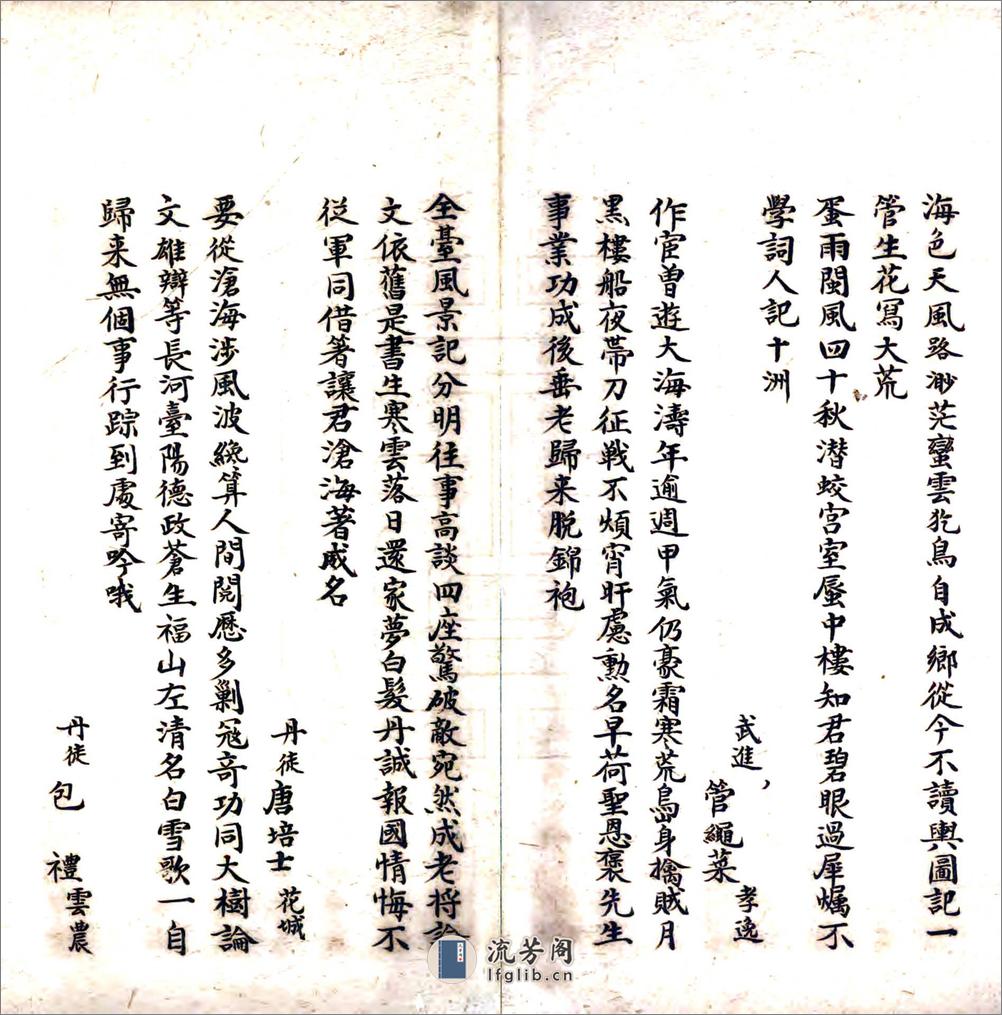 海色天風路渺茫蠻雲犵鳥自成鄉從今不讀輿圖記一
管生花寫大荒
蛋雨閩風四十秋潜蛟宫室蜃中樓知君碧眼過犀燭不
學詞人記十洲
武進 管繩萊 孝逸
作宦曾遊大海濤年逾週甲氣仍豪霜寒荒島身擒賊月
黑樓船夜帶刀征戰不煩宵旰慮勲名早荷聖恩褒先生
事業功成後垂老歸来脱錦袍
全臺風景記分明往事高談四座驚破敵宛然成老將論
文依舊是書生寒雲落日還家夢白髮丹誠報國情悔不
從軍同借箸讓君滄海著成名
丹徒 唐培士 花城
要從滄海涉風波纔算人間閱歷多剿冦竒功同大樹論
文雄辯等長河臺陽德政蒼生福山左清名白雪歌一自
歸来無個事行踪到處寄吟哦
丹徒 包 禮雲農
流芳阁
lfglib.cn